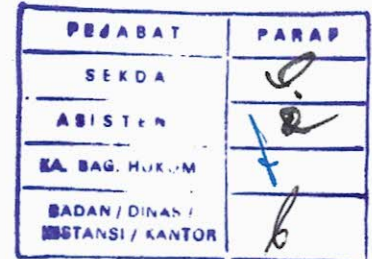 PEJABAT PARAP
SEKDA
ASISTEN
KA. BAG. HUKUM
BADAN / DINAS /
INSTANSI / KANTOR